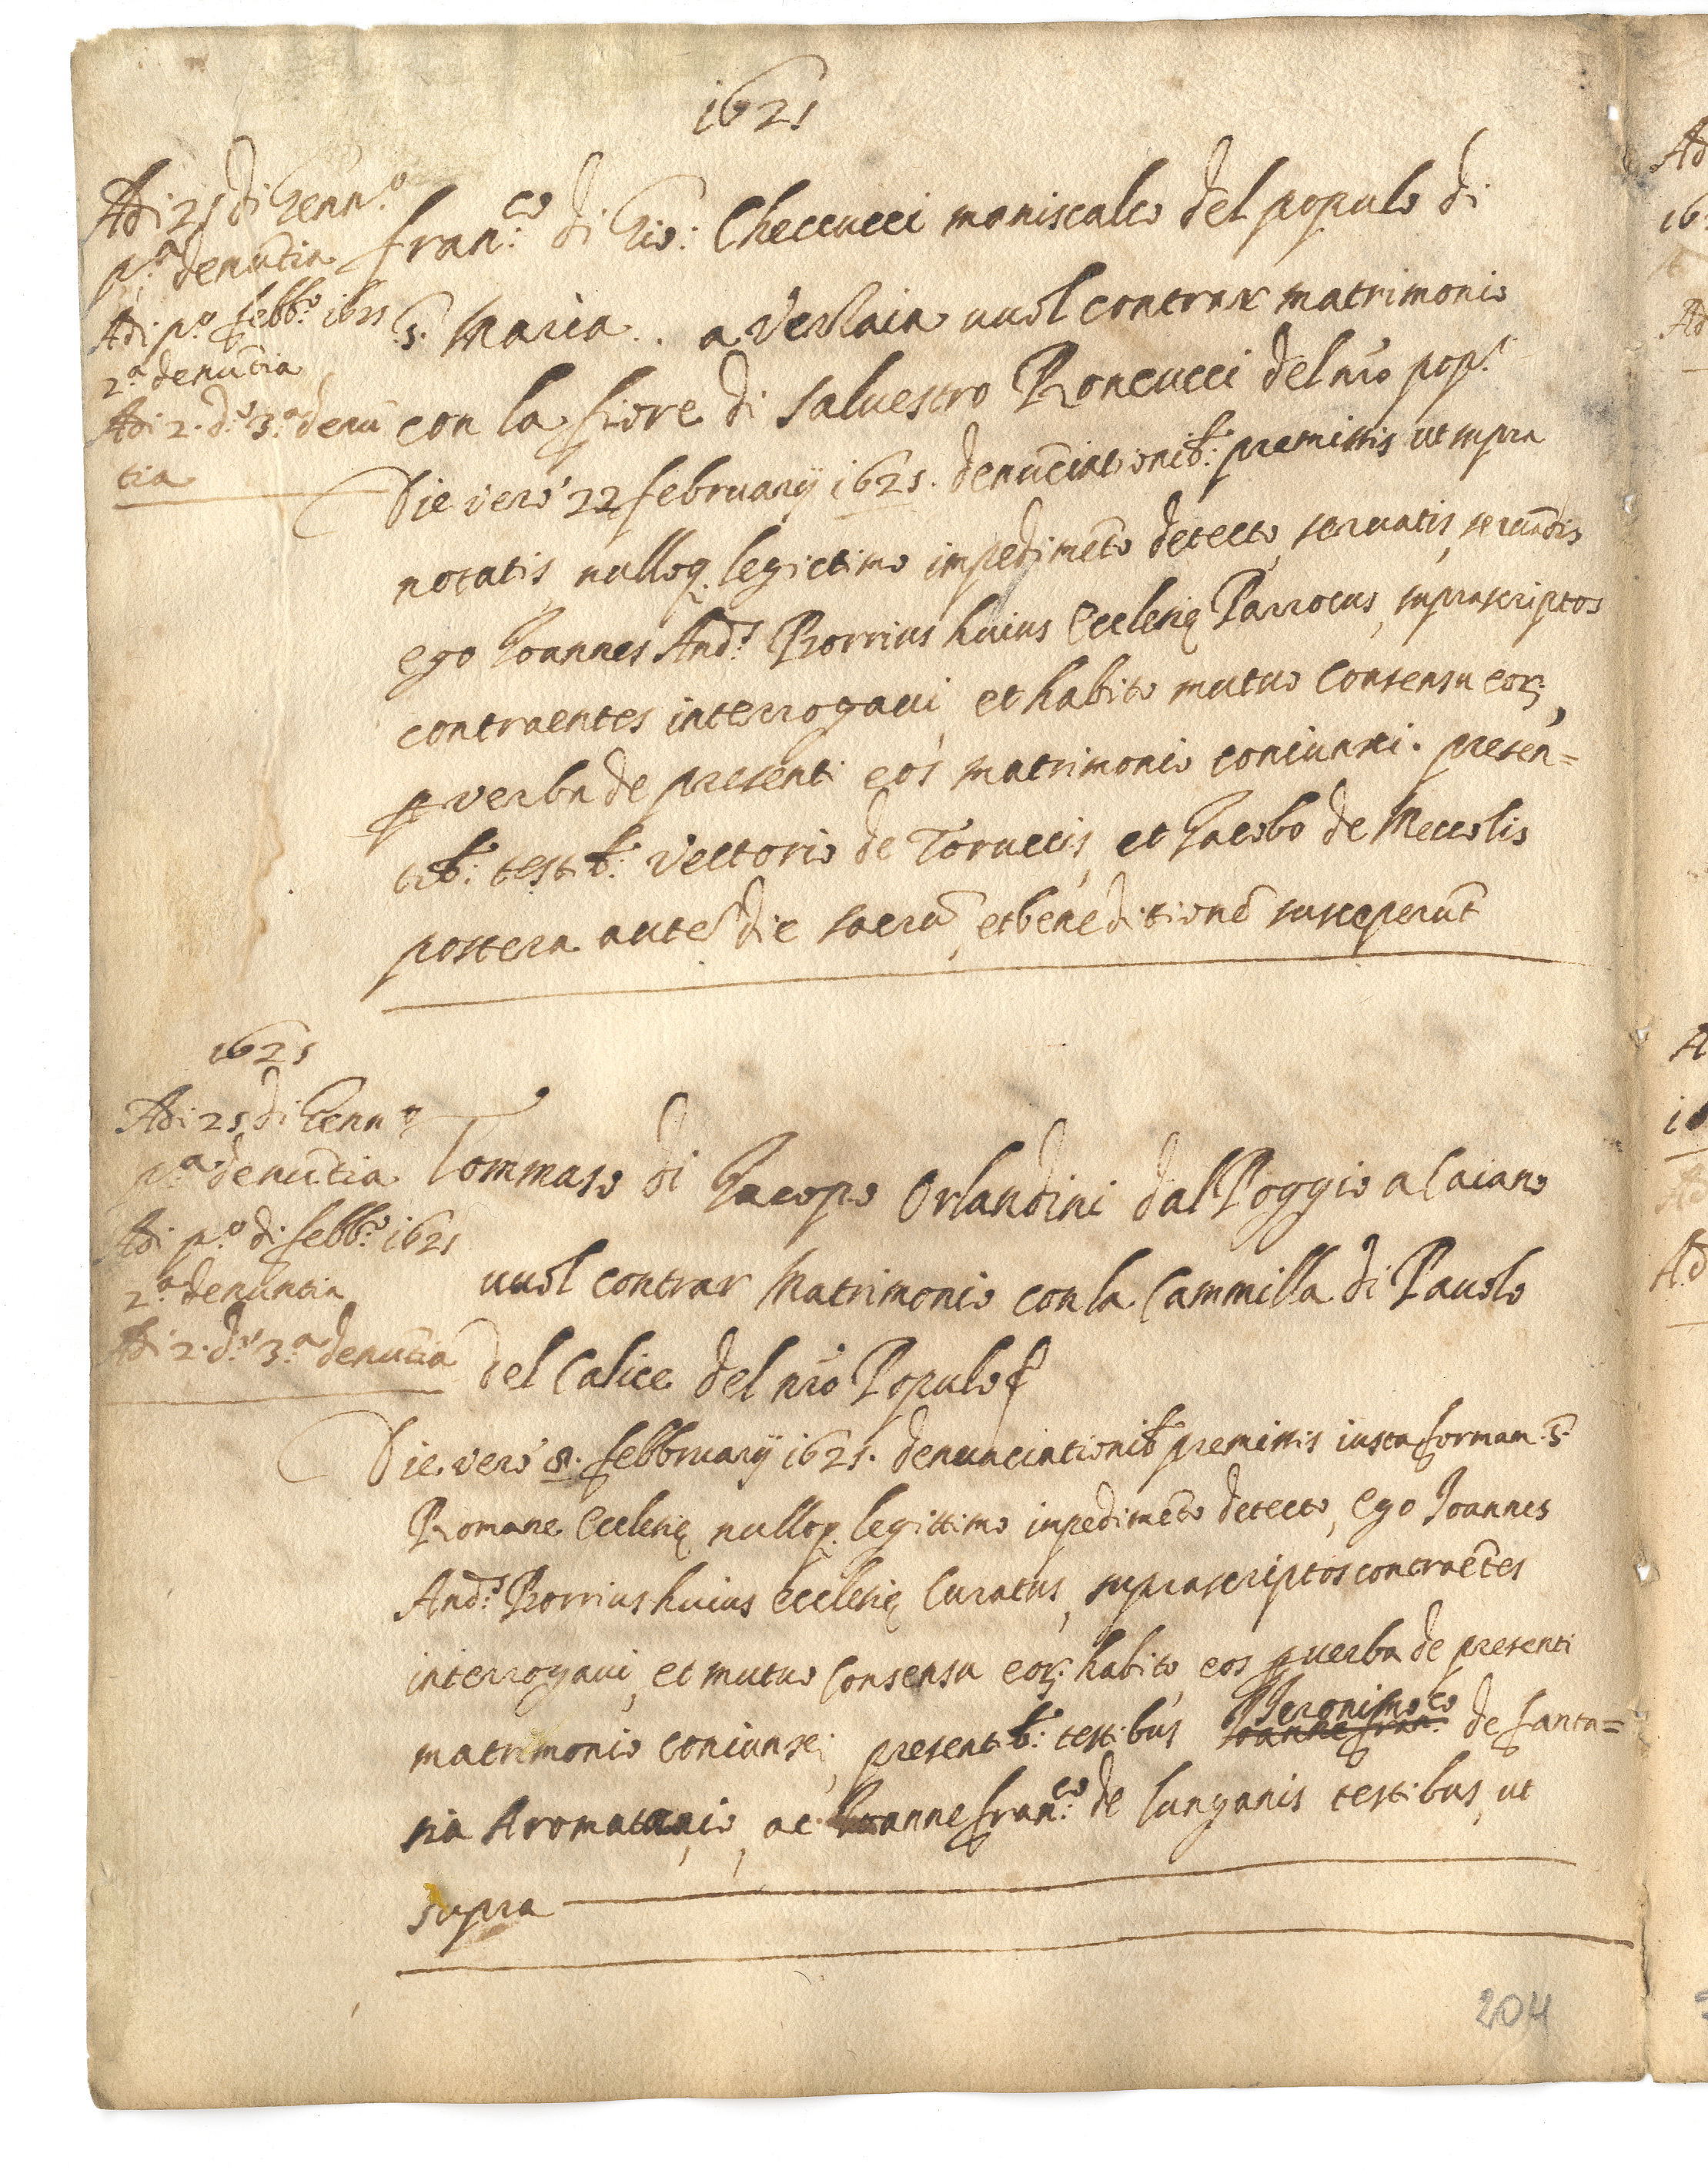 1625
Adi 25 di Genn.o
p.a denutia
Adi p.o febb.o 1625
2.a denutia
Adi 2. d.o 3.a denu
tia
fran.co di Gio: Checcucci maniscalco del populo di
S. Maria .. a Verzaia vuol contrar matrimonio
con la fiore di Saluestro Roncucci del nro pop.o
Die vero 22 february 1625. denuciationib: premissis ut supra
notatis, nulloq. legictimo impedimeto detecto, seruatis, seruadis
ego Joannes And.s Borrius huius Ecclesię Parrocus, suprascriptos
contraentes interrogaui, et habito mutuo consensu eor;,
p verba de presenti eos matrimonio coniunxi. presen=
tib: testib: Vettorio de Toruccis, et Jacobo de Meccolis
postera aute die sacru, et beneditione susceperut
1625
Adi 25 di Genn.o
p.a denutia
Adi p.o di febb.o 1625
2.a denuntia
Adi 2. d.o 3.a denutia
Tommaso di Jacopo Orlandini dal Poggio a Caiano
vuol contrar Matrimonio con la Cammilla di Pauolo
del Calice del nro Populo
Die vero 8. febbruary 1625. denunciationib premissis iusta forman S.
Romane Ecclesię nulloq. legittimo inpedimeto detecto, ego Joannes
And.s Borrius huius ecclesię Curatus, suprascriptos contraetes
interrogaui, et mutuo consensu eor; habito, eos p uerba de presenti
matrimonio coniunxi, presentib: testibus Jeronimo Joanne fran.co de fanta=
sia Aromatario, ac Joanne fran.co de Lunganis testibus, ut
supra
204